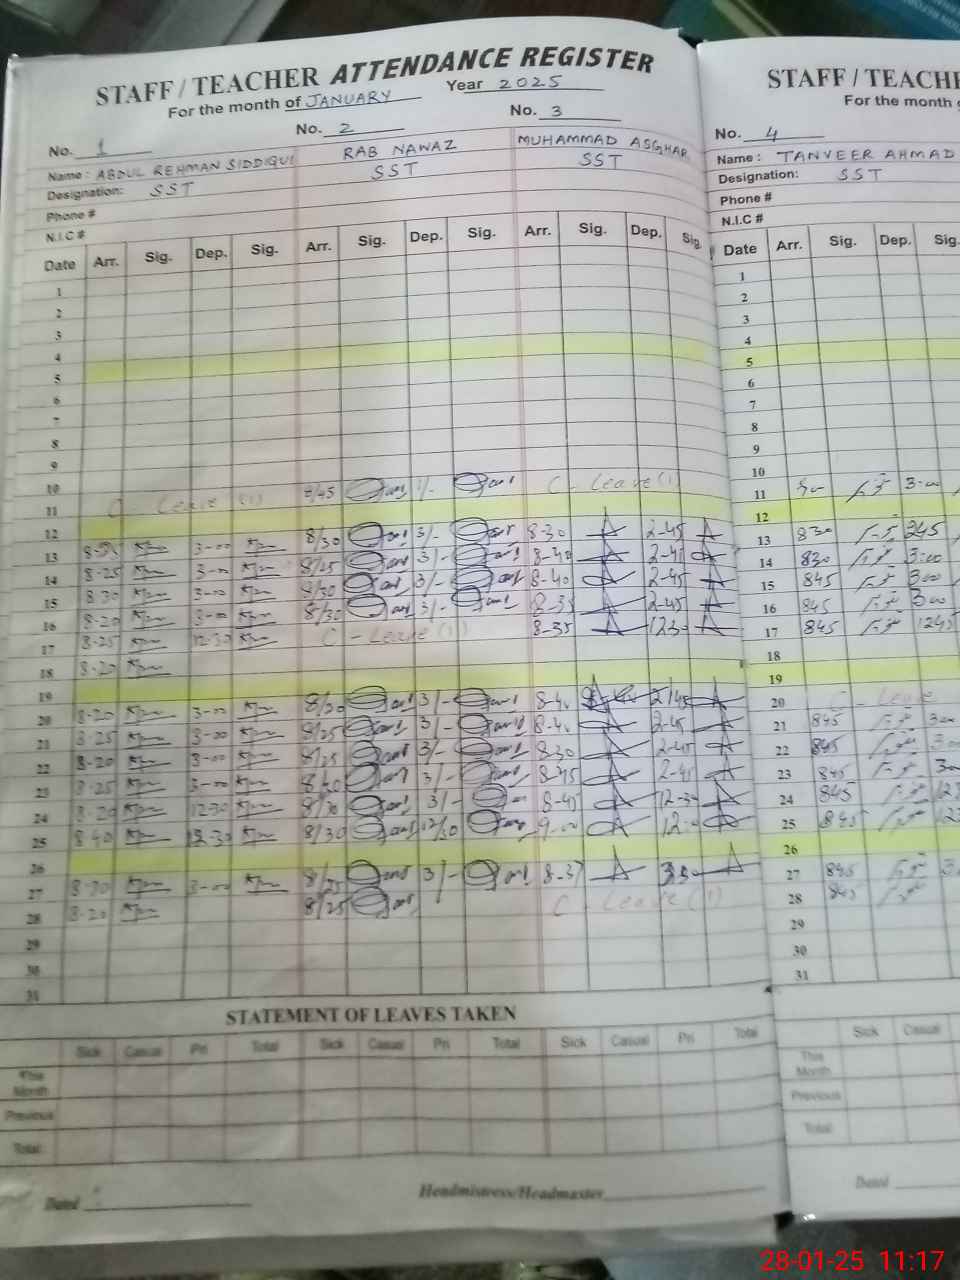 STAFF / TEACHER ATTENDANCE REGISTER
For the month of JANUARY Year 2025
No. 1 No. 2 No. 3
Name : ABDUL REHMAN SIDDIQUI RAB NAWAZ MUHAMMAD ASGHAR
Designation: SST SST SST
Phone #
N.I.C #
Date Arr. Sig. Dep. Sig. Arr. Sig. Dep. Sig. Arr. Sig. Dep. Sig.
1
2
3
4
5
6
7
8
9
10
11 C Leave (1) C - Leave (1)
12
13 3-00 8/30 3/- 8-30 2-45
14 8-25 3-00 8/25 3/- 8-40 2-45
15 8 30 3-00 8/30 3/- 8-40 2-45
16 8-20 3-00 8/30 3/- 8-35 2-45
17 8-25 12-30 C - Leave (1) 8-35 1230
18 8-20
19
20 8-20 3-00 8/20 3/- 8-40 2-45
21 8-25 3-00 8/25 3/- 8-40 2-45
22 8-20 3-00 8/25 3/- 8-30 2-45
23 8-25 3-00 8/20 3/- 8-45 2-45
24 8-20 12-30 8/30 3/- 8-45 12-30
25 8 40 12-30 8/30 12/30 9-00
26
27 8-30 3-00 8/25 3/- 8-37 330
28 8-20 8/25 C Leave (1)
29
30
31
STATEMENT OF LEAVES TAKEN
Sick Casual Pri Total Sick Casual Pri Total Sick Casual Pri Total
This Month
Previous
Total
Dated
Headmistress/Headmaster
STAFF / TEACHE
For the month
No. 4
Name : TANVEER AHMAD
Designation: SST
Phone #
N.I.C #
Date Arr. Sig. Dep. Sig.
1
2
3
4
5
6
7
8
9
10
11 3-00
12
13 830 245
14 830 3:00
15 845 300
16 845 300
17 845 1245
18
19
20 C - Leave
21 845 300
22 845
23 845
24 845
25 845
26
27 845
28 845
29
30
31
Sick Casual
This Month
Previous
Total
Dated
28-01-25 11:17